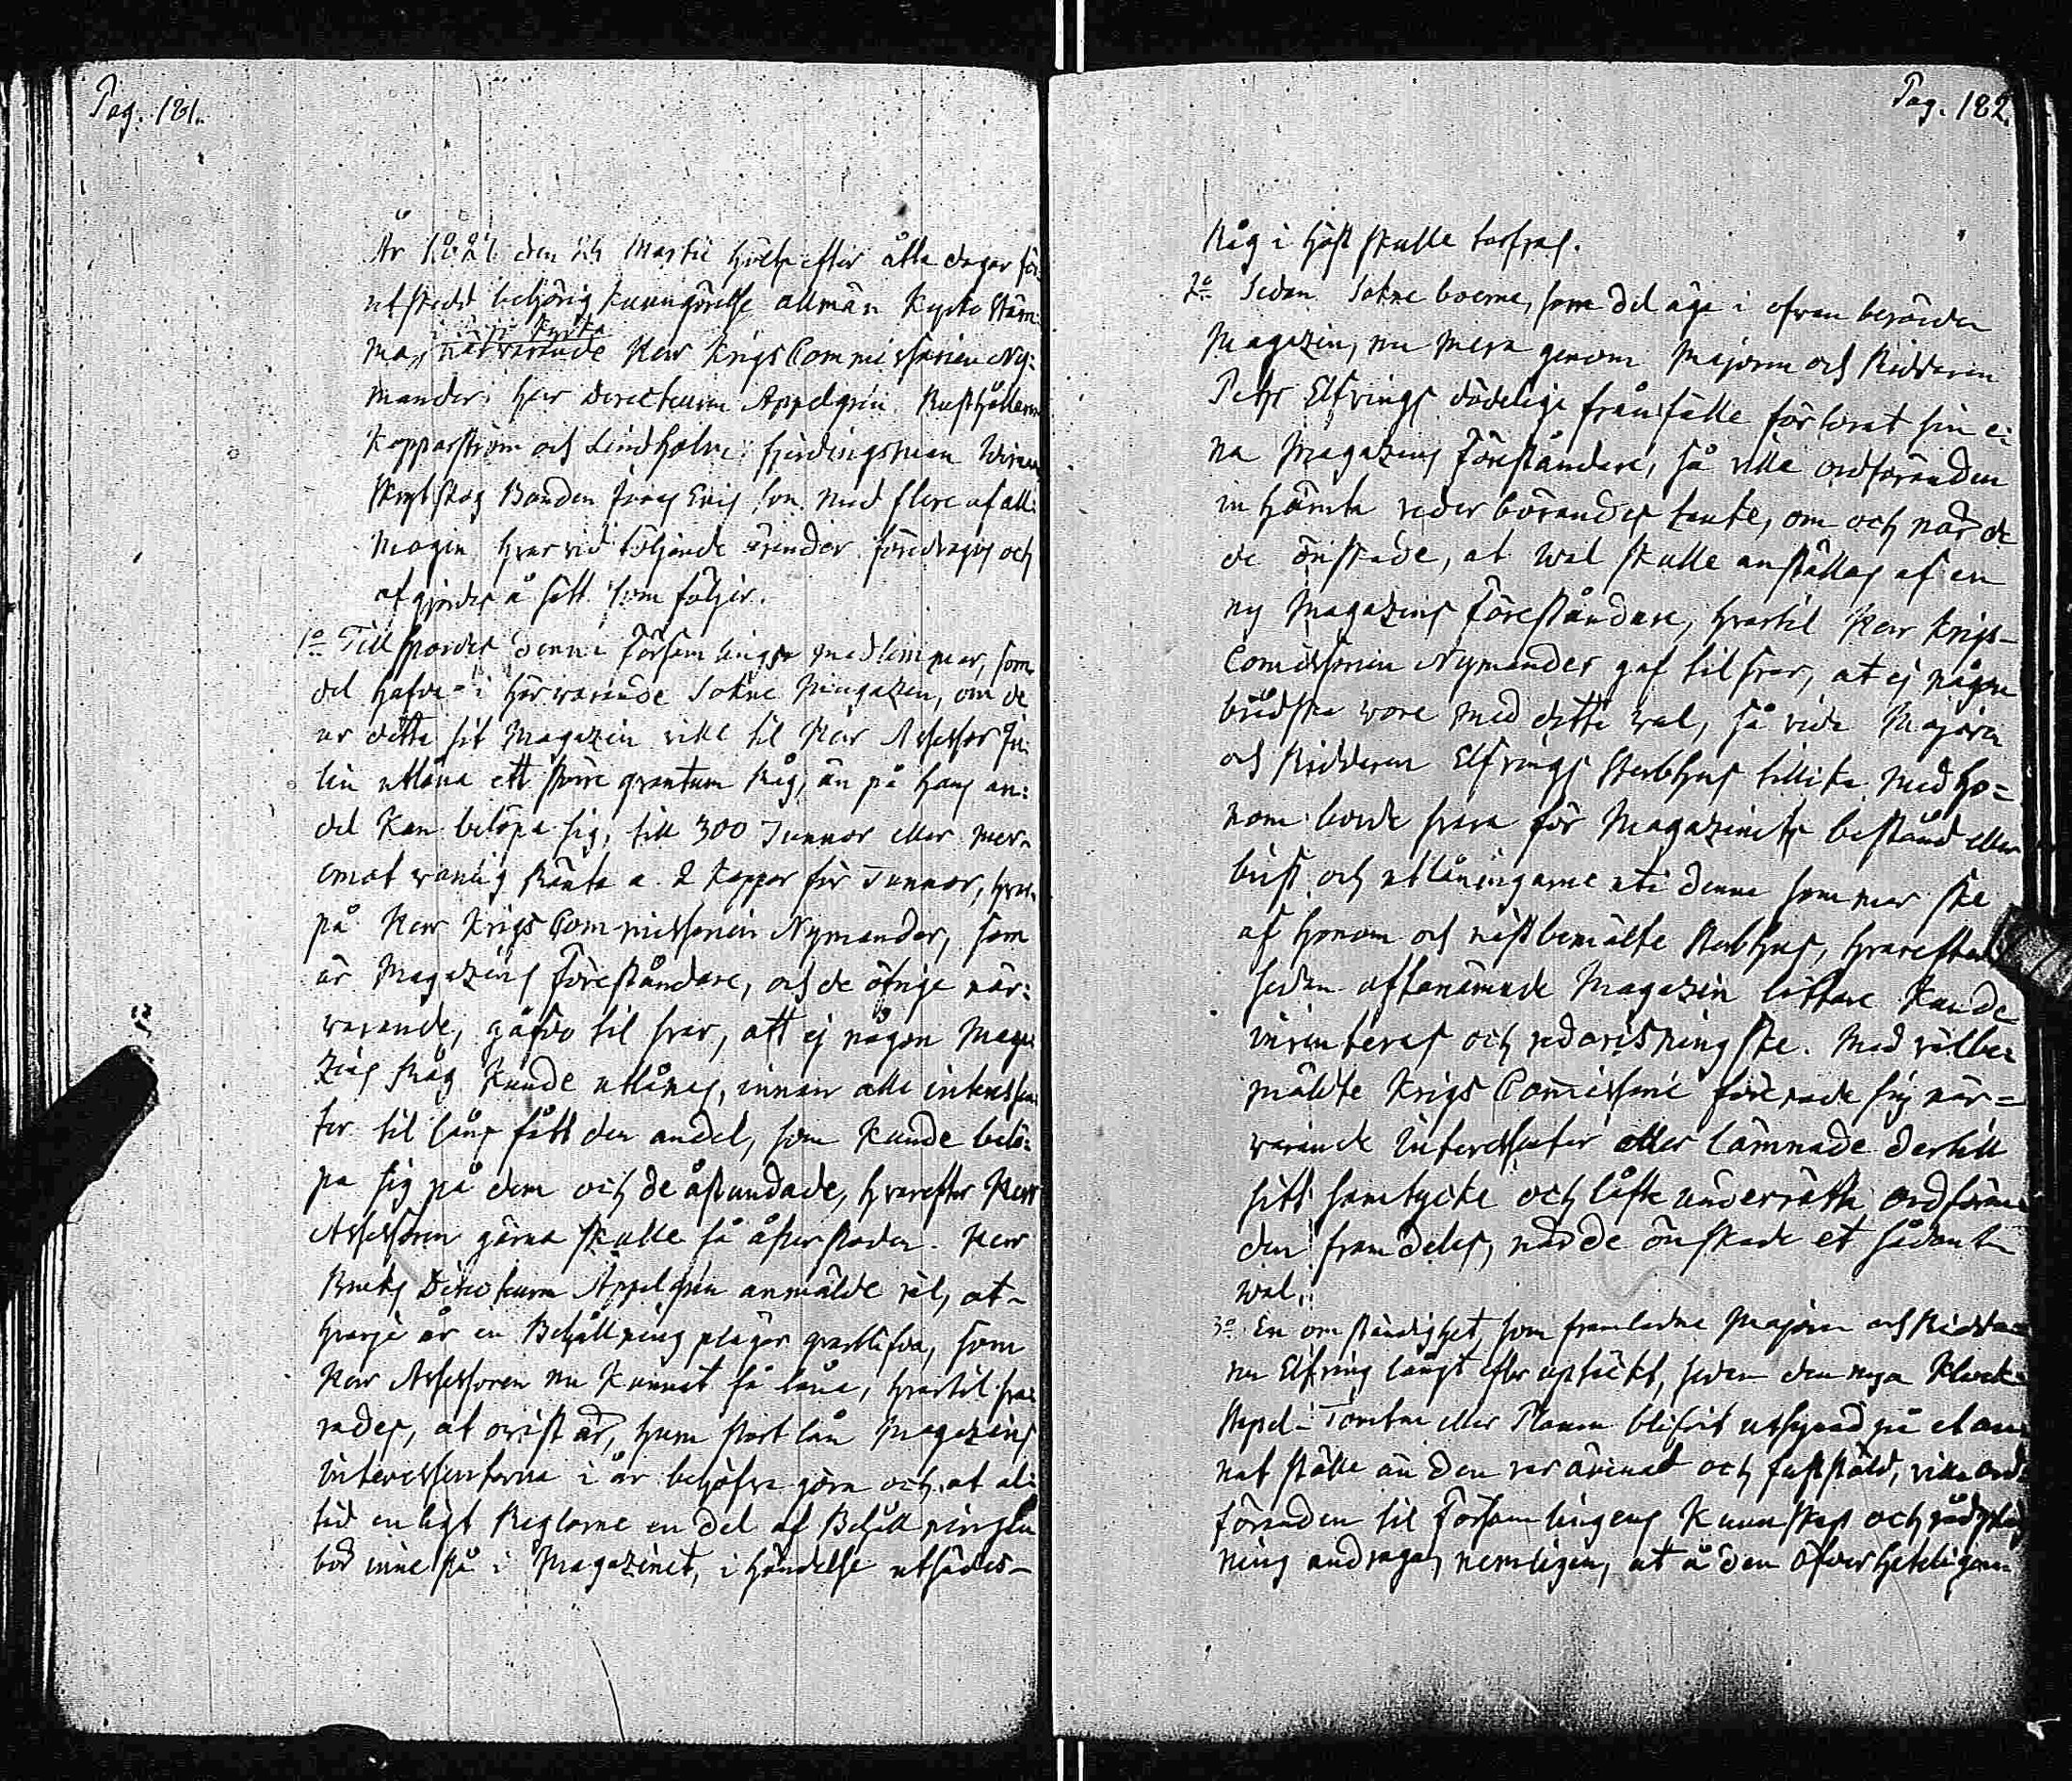 Pag. 181.
År 1821 den 24 Martii hölts efter åtta dagar för
ut skedd behörig kunngörelse allmän Kyrko Stäm-
i   Kyrka
ma, närvarande Herr Krigs Commissarien Ny-
mander, Herr Directeuren Appelgrén Rusthållarne
Kopparström och Lindholm, fjerdingsman
Bonden Erics son med flere af all-
mogen hvarvid följande ärender föredrogos och
afgjordes å sätt som följer.
1o Till spordes denne Församlings medlemmar, som
del hafva i härvarande Sokne Magazin, om de
ur detta sit Magazin ville til Herr Assessor Ju-
lin utlåna ett större qvantum Råg, än på hans an-
del kan belöpa sig, till 300 Tunnor eller mer
emot vanlig Ränta a 2 kappar för Tunnan, hvar-
på Herr Krigs Commissarien Nymander, som
är Magazins Föreståndare, och de öfrige när-
varande, gåfvo til svar, att ej någon Maga-
zins Råg kunde utlånas, innan alla interessen-
ter til låns fått den andel, som kunde belö-
pa sig på dem och de åstundade, hvarefter Herr
Assessoren gärna skulle få återstoden. Herr
Bruks Directeuren Appelgrén anmälde väl, at
hvarje år en Behållning plägar qvarblifva, som
Herr Assessoren nu kunnat få låna, hvartil sva-
rades, at ovist är, huru stort lån Magazins
Interessenterna i år behöfva göra och at al-
tid enligt Reglorne en del af Behållningen
bör inne stå i Magazinet, i händelse utsädes-
Pag. 182.
Råg i höst skulle torfvas.
2o Sedan Sokne boerne, som del äga i ofvan berörde
Magazin, nu mera genom Majoren och Riddaren
Petr Elfvings dödelige frånfälle förlorat sin e-
na Magazins Föreståndare, så ville ordföranden
inhämta vederbörandes tanke, om och när
de önskade, at wal skulle anställas af en
ny Magazins Föreståndare, hvartil Herr Krigs-
Comissarien Nymander gaf til svar, at ej någon
brådska vore med detta val, så vida Majoren
och Riddaren Elfvings Sterbhus tillika med ho-
nom borde svara för Magazinets bestånd eller
brist och utlåningarne uti denne sommar ske
af honom och näst bemälte Sterbhus, hvarefter
sedan oftanämnde Magazin lättare kunde
inventeras och redovisning ske. Med välbe-
mälde Krigs Comissarie förenade sig när-
varande Interessenter eller lämnade dertill
sitt samtycke och låfte underrätta ordföran-
den framdeles, när de önskade et sådant
wal.
3o En omständighet, som framledne Majoren och Ridda-
ren Elfving långt efter uptäckt, sedan den nya Klock-
stapel-Tomten eller Planen blifvit utsynad på et an-
nat ställe än den var ärnad och fastställd, ville ord-
föranden til Församlingens kunnskap och rådpläg-
ning andraga, nemligen, at å den Öfverheteligen